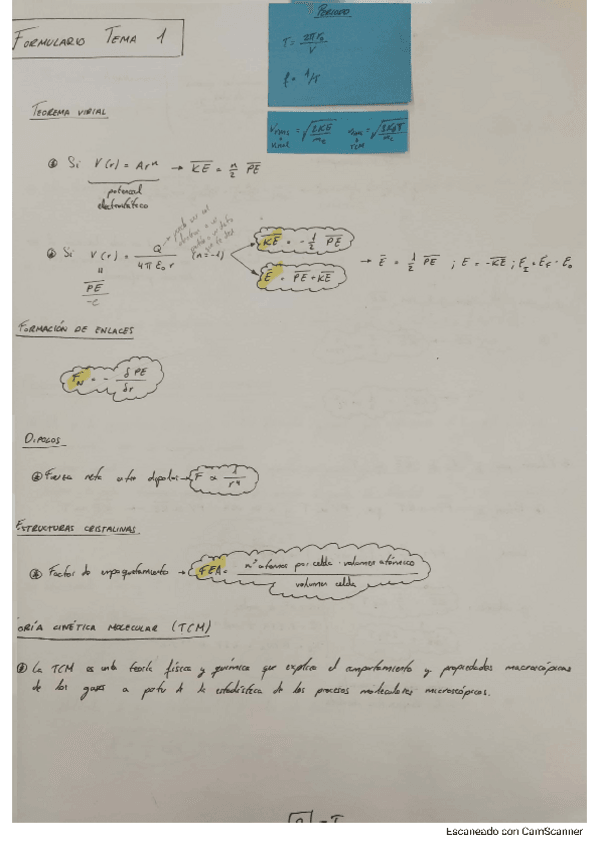 FORMULARIO TEMA 1
PERIODO
T = 2πr₀/V
f = 1/T
TEOREMA VIRIAL
Vrms = √(2KE/me)
Si V(r) = Arⁿ → K̅E̅ = n/2 P̅E̅
potencial
electrostático
Si V(r) = Q/(4πε₀r) (n=-1)
P̅E̅/-e
K̅E̅ = -1/2 P̅E̅
E̅ = P̅E̅ + K̅E̅
→ E̅ = 1/2 P̅E̅ ; E = -K̅E̅ ; E_I = E_F - E₀
FORMACIÓN DE ENLACES
F_N = - δPE/δr
DIPOLOS
Fuerza neta entre dipolos → F ∝ 1/r⁴
ESTRUCTURAS CRISTALINAS
Factor de empaquetamiento → FEA = nº átomos por celda · volumen atómico / volumen celda
ORÍA CINÉTICA MOLECULAR (TCM)
La TCM es una teoría física y química que explica el comportamiento y propiedades macroscópicas
de los gases a partir de la estadística de los procesos moleculares microscópicos.
Escaneado con CamScanner